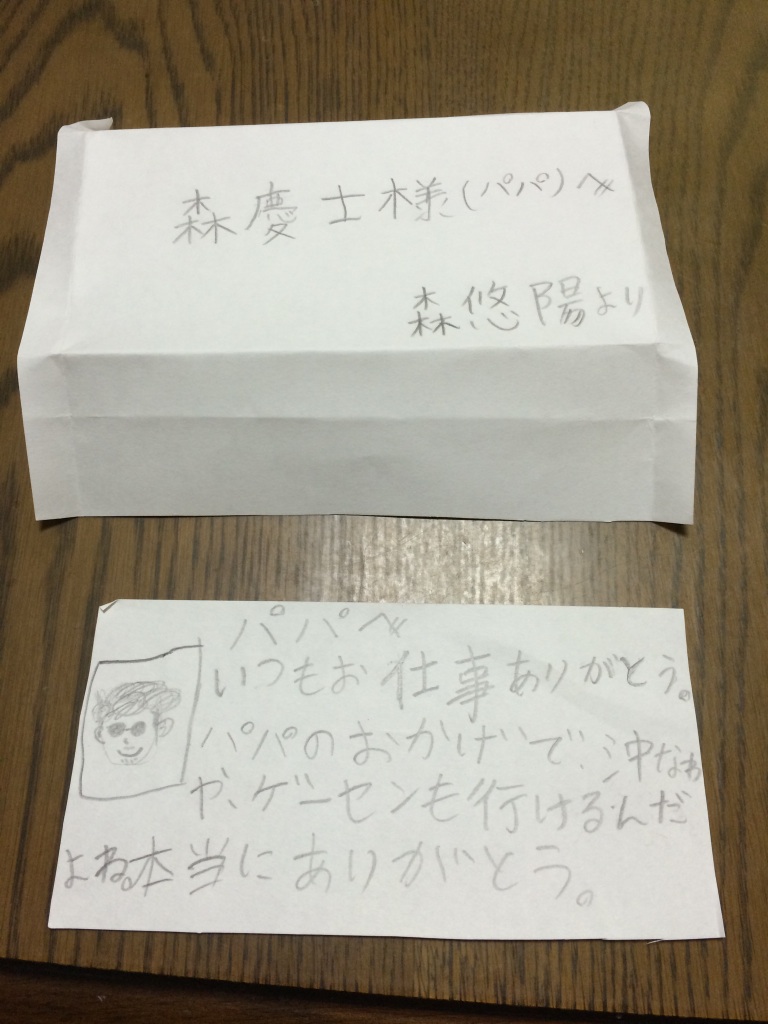 森慶士様(パパ)へ
森悠陽より
パパへ
いつもお仕事ありがとう。
パパのおかげで、沖なわ
や、ゲーセンも行けるんだ
よね。本当にありがとう。